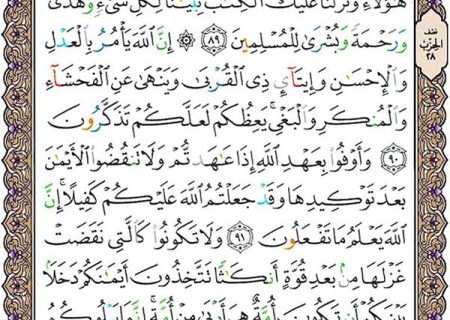 هَٰٓؤُلَآءِ وَنَزَّلْنَا عَلَيْكَ ٱلْكِتَٰبَ تِبْيَٰنًا لِّكُلِّ شَىْءٍ وَهُدًى
وَرَحْمَةً وَبُشْرَىٰ لِلْمُسْلِمِينَ ٨٩ ۞ إِنَّ ٱللَّهَ يَأْمُرُ بِٱلْعَدْلِ
وَٱلْإِحْسَٰنِ وَإِيتَآئِ ذِى ٱلْقُرْبَىٰ وَيَنْهَىٰ عَنِ ٱلْفَحْشَآءِ
وَٱلْمُنكَرِ وَٱلْبَغْىِ ۚ يَعِظُكُمْ لَعَلَّكُمْ تَذَكَّرُونَ
٩٠ وَأَوْفُوا۟ بِعَهْدِ ٱللَّهِ إِذَا عَٰهَدتُّمْ وَلَا تَنقُضُوا۟ ٱلْأَيْمَٰنَ
بَعْدَ تَوْكِيدِهَا وَقَدْ جَعَلْتُمُ ٱللَّهَ عَلَيْكُمْ كَفِيلًا ۚ إِنَّ
ٱللَّهَ يَعْلَمُ مَا تَفْعَلُونَ ٩١ وَلَا تَكُونُوا۟ كَٱلَّتِى نَقَضَتْ
غَزْلَهَا مِنۢ بَعْدِ قُوَّةٍ أَنكَٰثًا تَتَّخِذُونَ أَيْمَٰنَكُمْ دَخَلًۢا
بَيْنَكُمْ أَن تَكُونَ أُمَّةٌ هِىَ أَرْبَىٰ مِنْ أُمَّةٍ ۚ إِنَّمَا يَبْلُوكُمُ
نصف
الحزب
٢٨